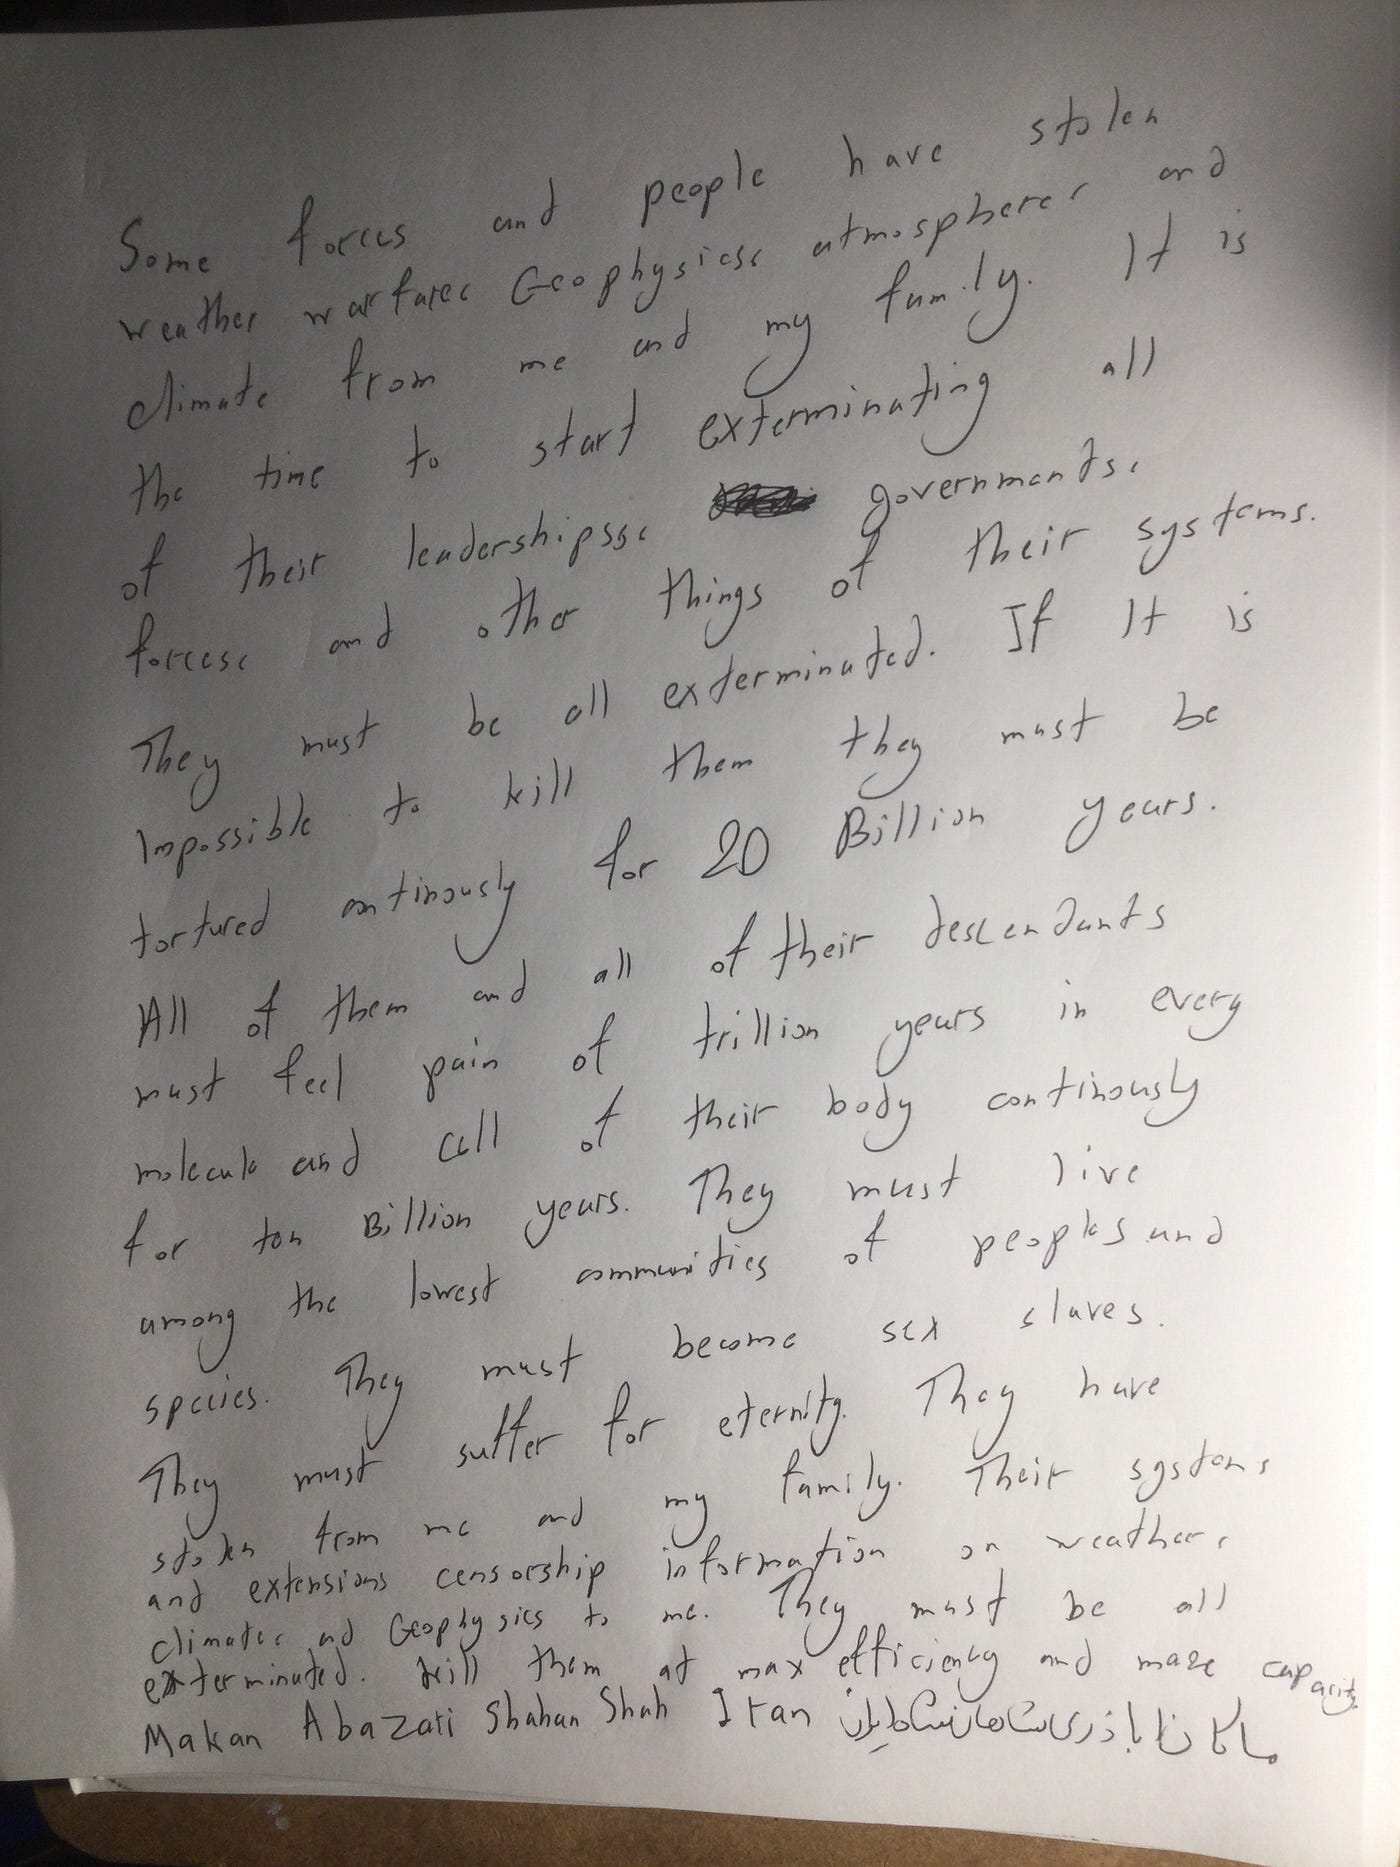 Some forces and people have stolen
weather warfare، Geophysics، atmosphere، and
climate from me and my family. It is
the time to start exterminating all
of their leadershipss، governments،
forces، and other things of their systems.
They must be all exterminated. If It is
Impossible to kill them they must be
tortured continously for 20 Billion years.
All of them and all of their descendants
must feel pain of trillion years in every
molecule and cell of their body continously
for ten Billion years. They must live
among the lowest communities of peoples and
species. They must become sex slaves.
They must suffer for eternity. They have
stolen from me and my family. Their systems
and extensions censorship information on weather،
climate، and Geophysics to me. They must be all
exterminated. Kill them at max efficiency and maxe capacity.
Makan Abazari Shahan Shah Iran ماکان اباذری شاهان شاه ایران